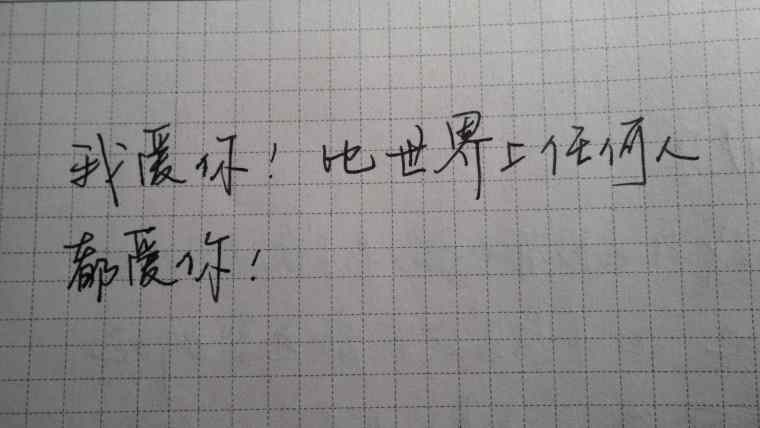 我爱你！比世界上任何人
都爱你！